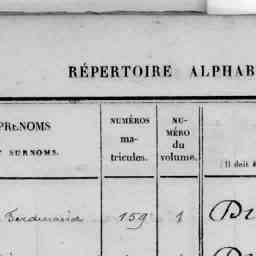 RÉPERTOIRE ALPHAB
PRENOMS
ET SURNOMS.
NUMÉROS
ma-
tricules.
NU-
MÉRO
du
volume.
(Il doit ê
Ferdinand 159 1 Du